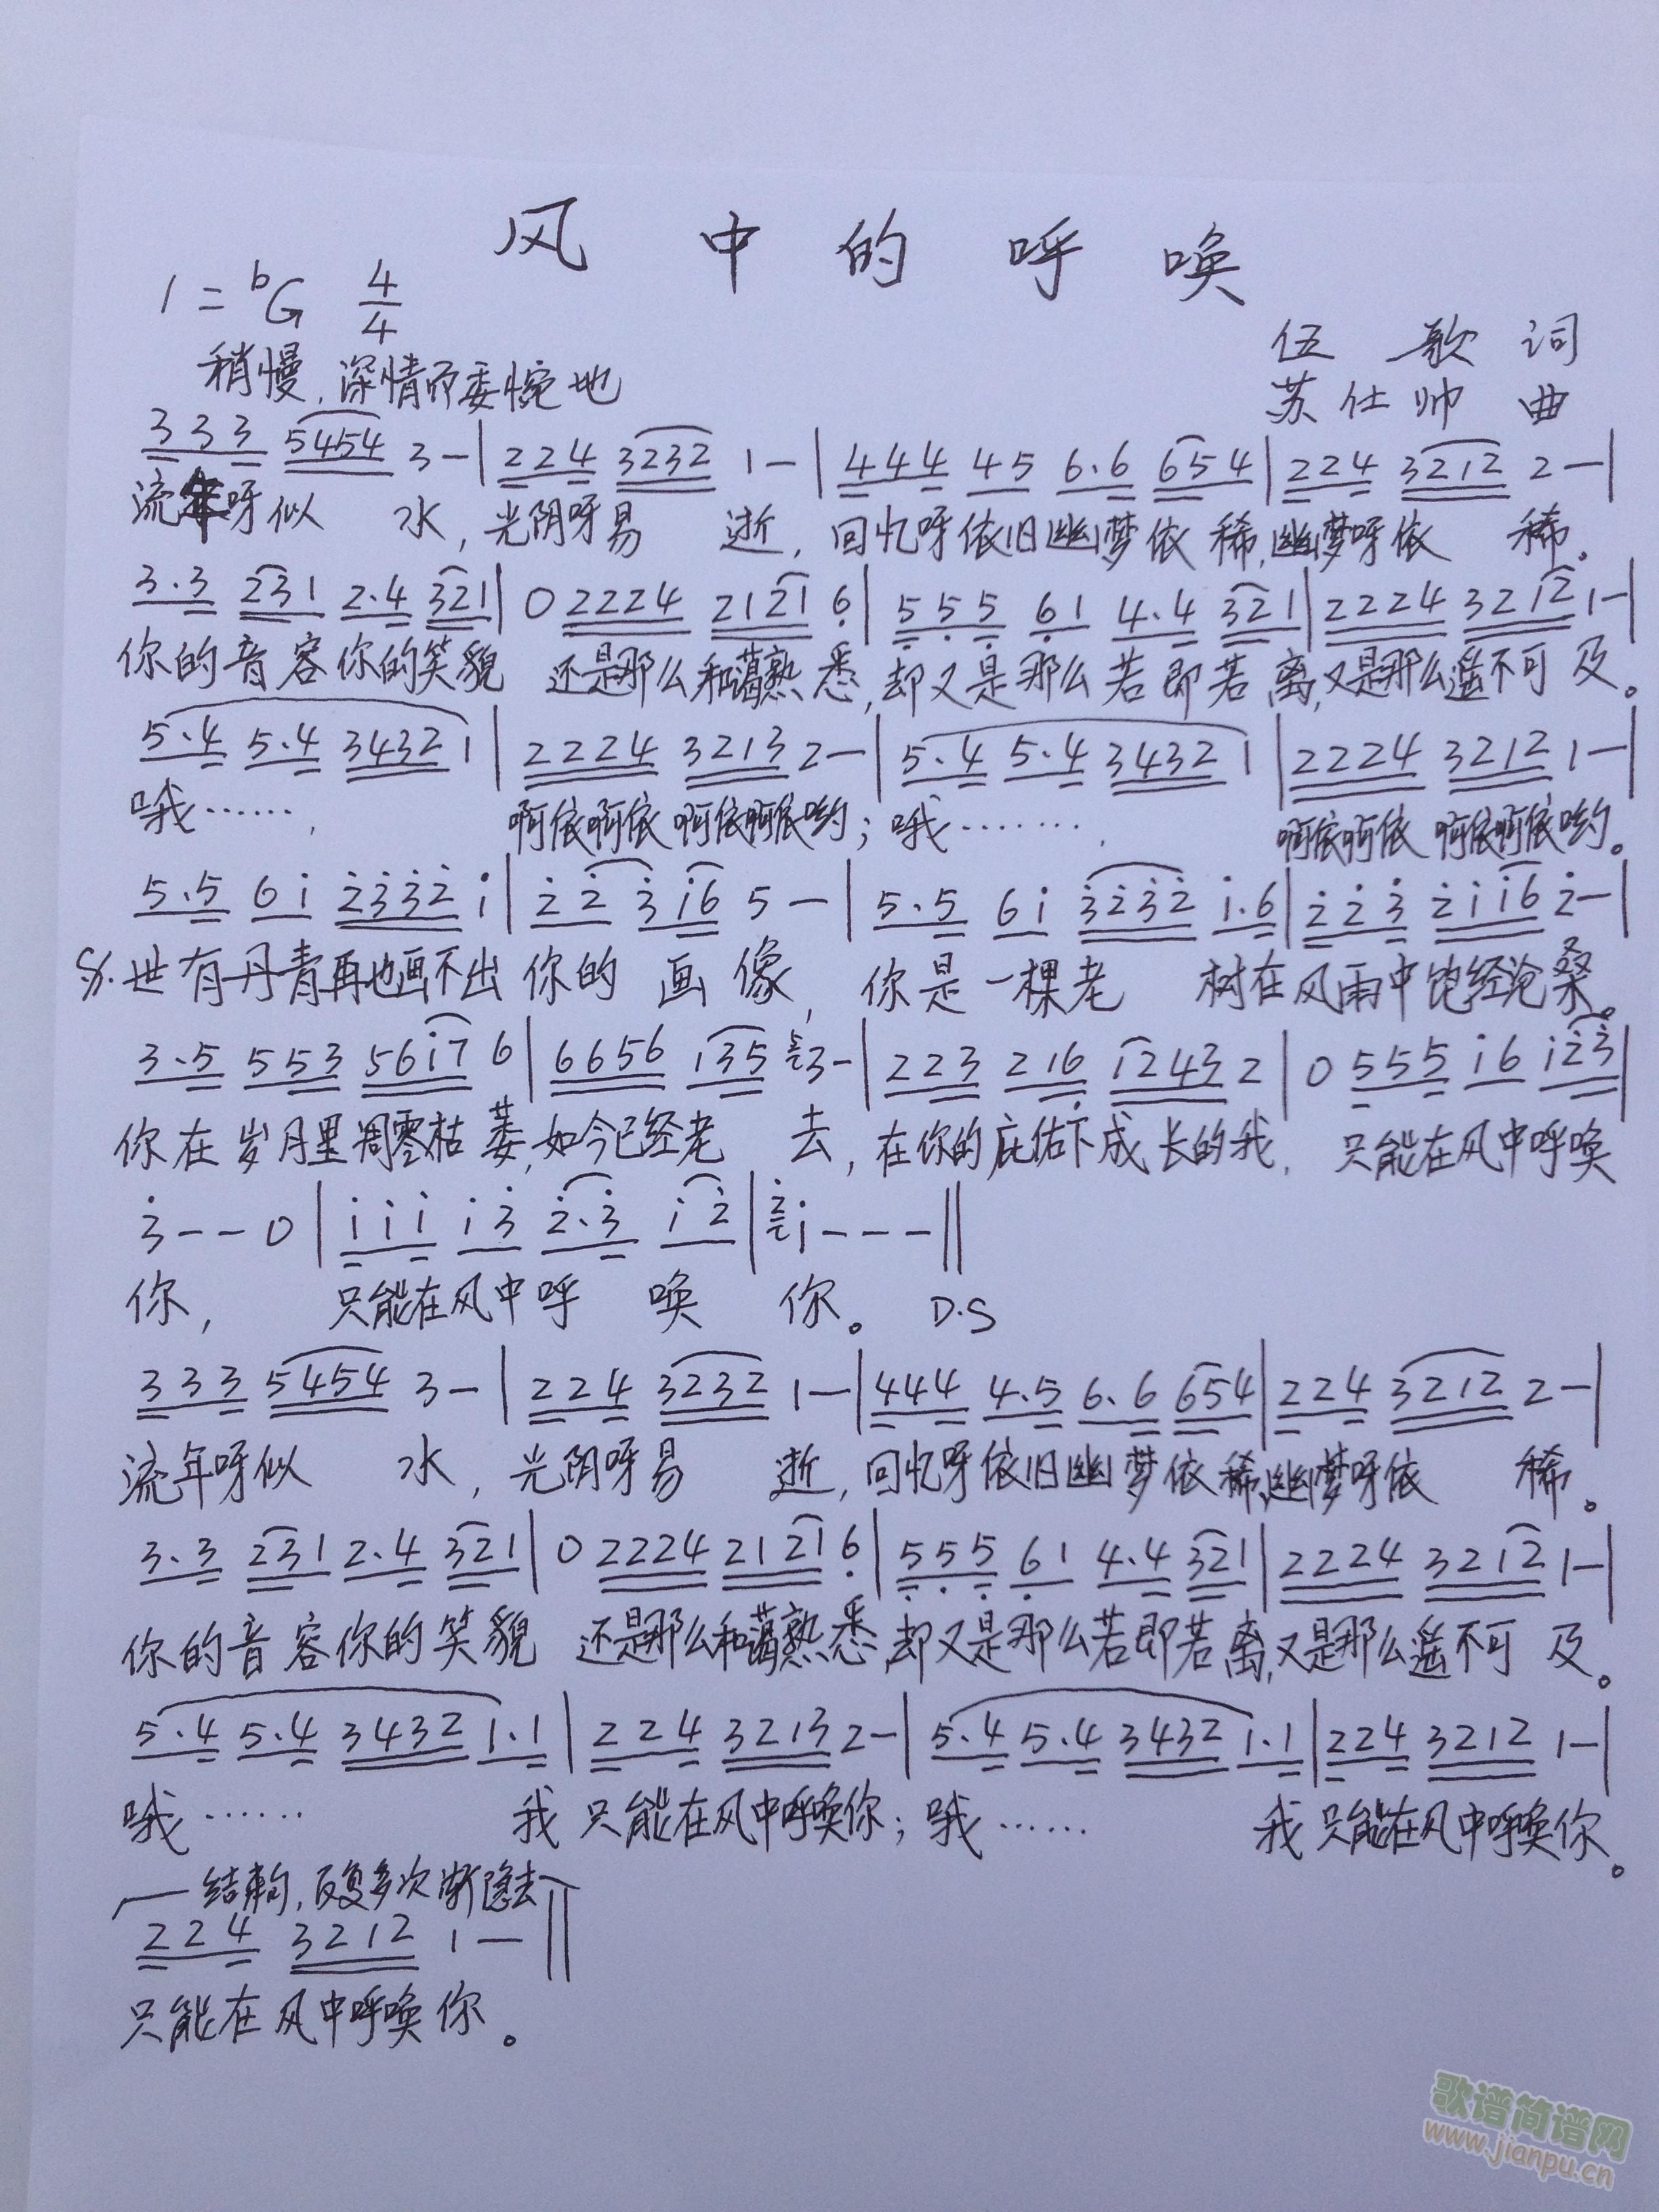 风中的呼唤
1=ᵇG 4/4
伍歌词
稍慢,深情而委惋地
苏仕帅 曲
333 5454 3-|224 3232 1-|444 45 6.6 654|224 3212 2-|
流年呀似 水,光阴呀易 逝,回忆呀依旧幽梦依稀,幽梦呀依 稀。
3.3 231 2.4 321|0 2224 2121 6|555 61 4.4 321|2224 3212 1-|
你的音容你的笑貌 还是那么和蔼熟悉,却又是那么若即若离,又是那么遥不可及。
5.4 5.4 3432 1|2224 3213 2-|5.4 5.4 3432 1|2224 3212 1-|
哦……, 啊依啊依 啊依啊依哟;哦……. 啊依啊依 啊依啊依哟。
5.5 6i 2332 i|22 3i6 5-|5.5 6i 3232 i.6|223 2ii6 2-|
S/.世有丹青再也画不出你的画像,你是一棵老 树在风雨中饱经沧桑。
3.5 553 56i7 6|6656 i35 3-|223 216 1243 2|0 555 i6 i23|
你在岁月里凋零枯萎,如今已经老 去,在你的庇佑下成长的我, 只能在风中呼唤
3--0|iii i3 2.3 i2|2i---||
你, 只能在风中呼 唤 你。 D.S
333 5454 3-|224 3232 1-|444 4.5 6.6 654|224 3212 2-|
流年呀似 水,光阴呀易 逝,回忆呀依旧幽梦依稀,幽梦呀依 稀。
3.3 231 2.4 321|0 2224 2121 6|555 61 4.4 321|2224 3212 1-|
你的音容你的笑貌 还是那么和蔼熟悉,却又是那么若即若离,又是那么遥不可及。
5.4 5.4 3432 1.1|224 3213 2-|5.4 5.4 3432 1.1|224 3212 1-|
哦…… 我只能在风中呼唤你;哦…… 我只能在风中呼唤你。
结束句,反复多次渐隐去
224 3212 1-||
只能在风中呼唤你。
歌谱简谱网
www.jianpu.cn